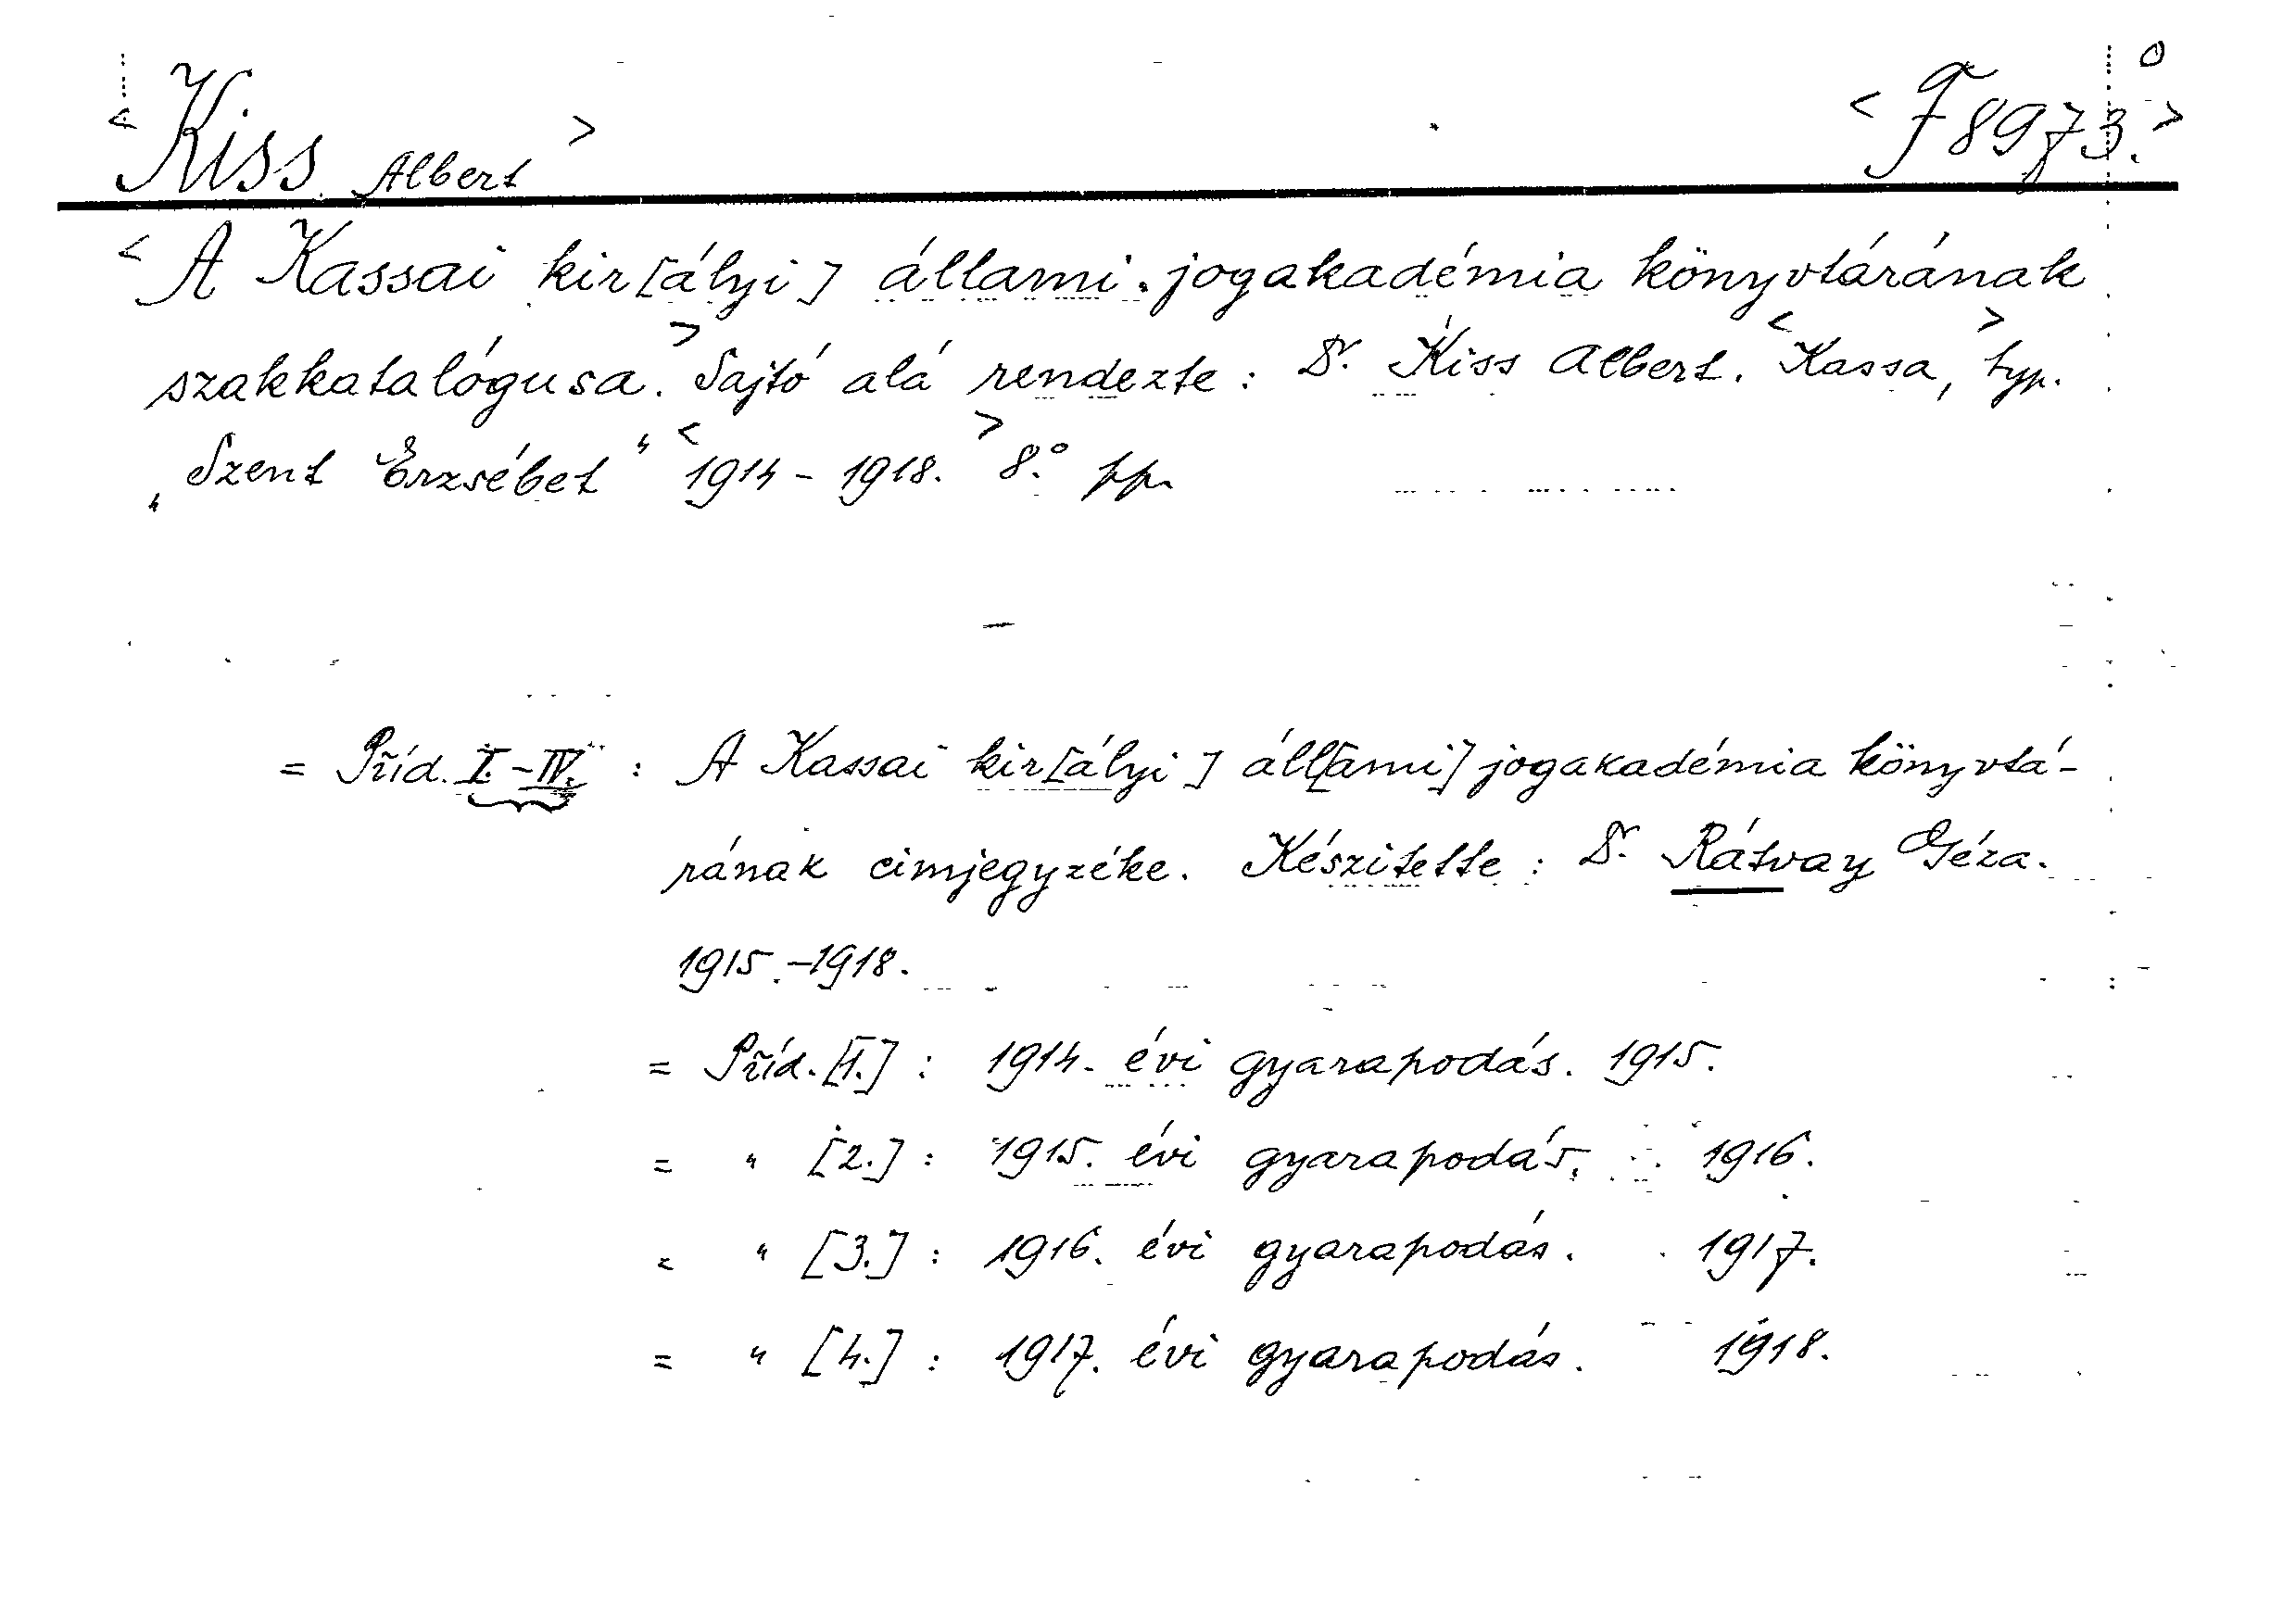 < Kiss Albert > < F 8973. >
< A Kassai kir[ályi] állami jogakadémia könyvtárának
szakkatalógusa. > Sajtó alá rendezte : Dr. Kiss Albert. < Kassa, > typ.
„Szent Erzsébet" < 1914 - 1918. > 8.° pp.
= Příd. I. - IV. : A Kassai kir[ályi] áll[ami] jogakadémia könyvtá-
rának cimjegyzéke. Készitette : Dr. Rátvay Géza.
1915. - 1918.
= Příd. [1.] : 1914. évi gyarapodás. 1915.
= " [2.] : 1915. évi gyarapodás. 1916.
= " [3.] : 1916. évi gyarapodás. 1917.
= " [4.] : 1917. évi gyarapodás. 1918.